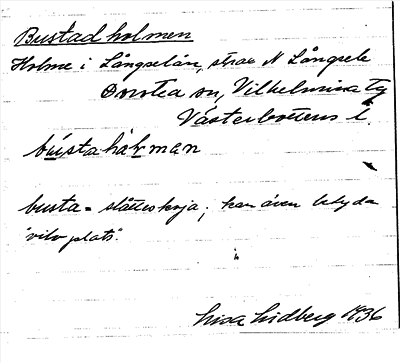 Bustadholmen
Holme i Långselån, strax N Långsele
Dorotea sn, Vilhelmina tg
Västerbottens l.
bústahòḷman
busta = slåtterkoja; kan även betyda
"viloplats".
Lisa Lidberg 1936